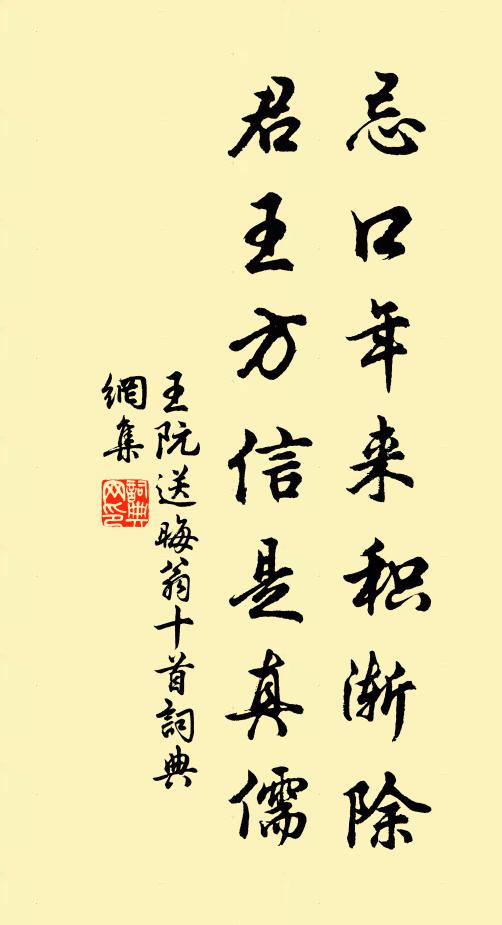 忌口年来积渐除
君王方信是真儒
王阮送晦翁十首詞典
網集
詞典網印